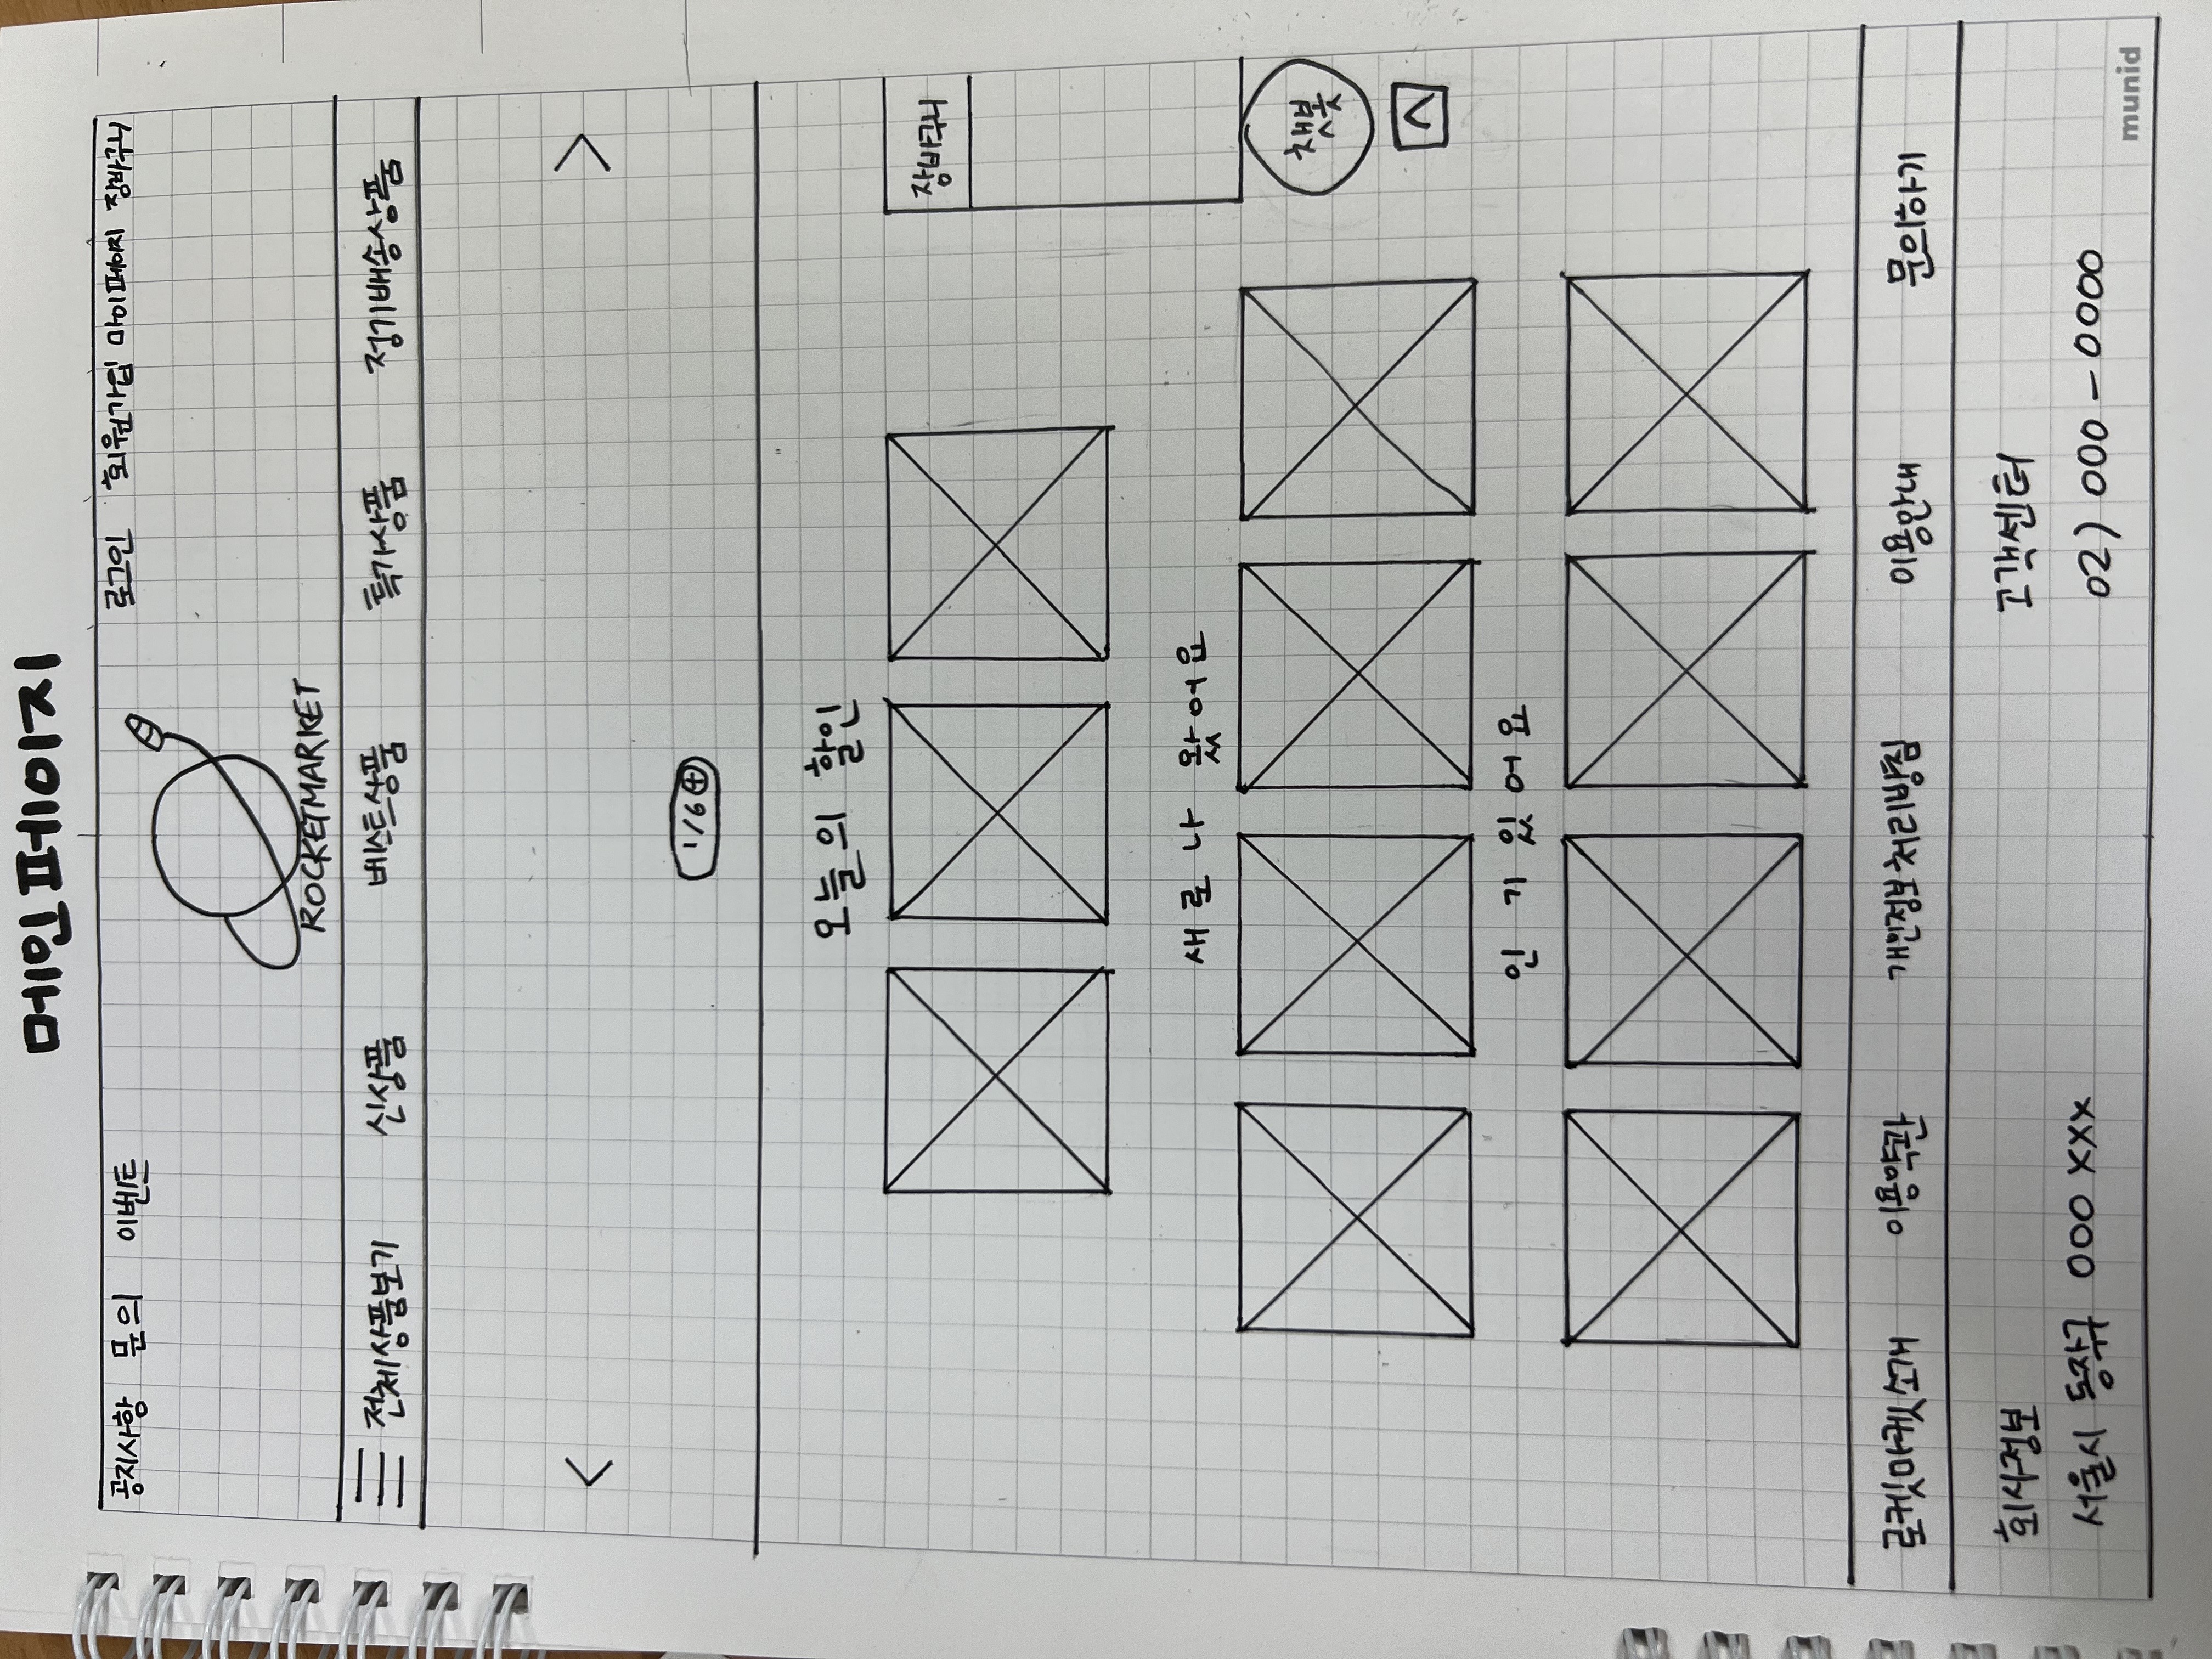 메인페이지
공지사항 문의 이벤트 로그인 회원가입 마이페이지 장바구니
ROCKETMARKET
전체상품보기 신상품 베스트상품 특가상품 정기배송상품
< >
1/6 +
오늘의 할인
장바구니
새로나 왔어요
챗봇
인기있어요
로켓마켓소개 이용약관 개인정보처리방침 이용안내 문의하기
회사정보 고객센터
서울시 동작구 000 XXX 02) 000-0000
munid